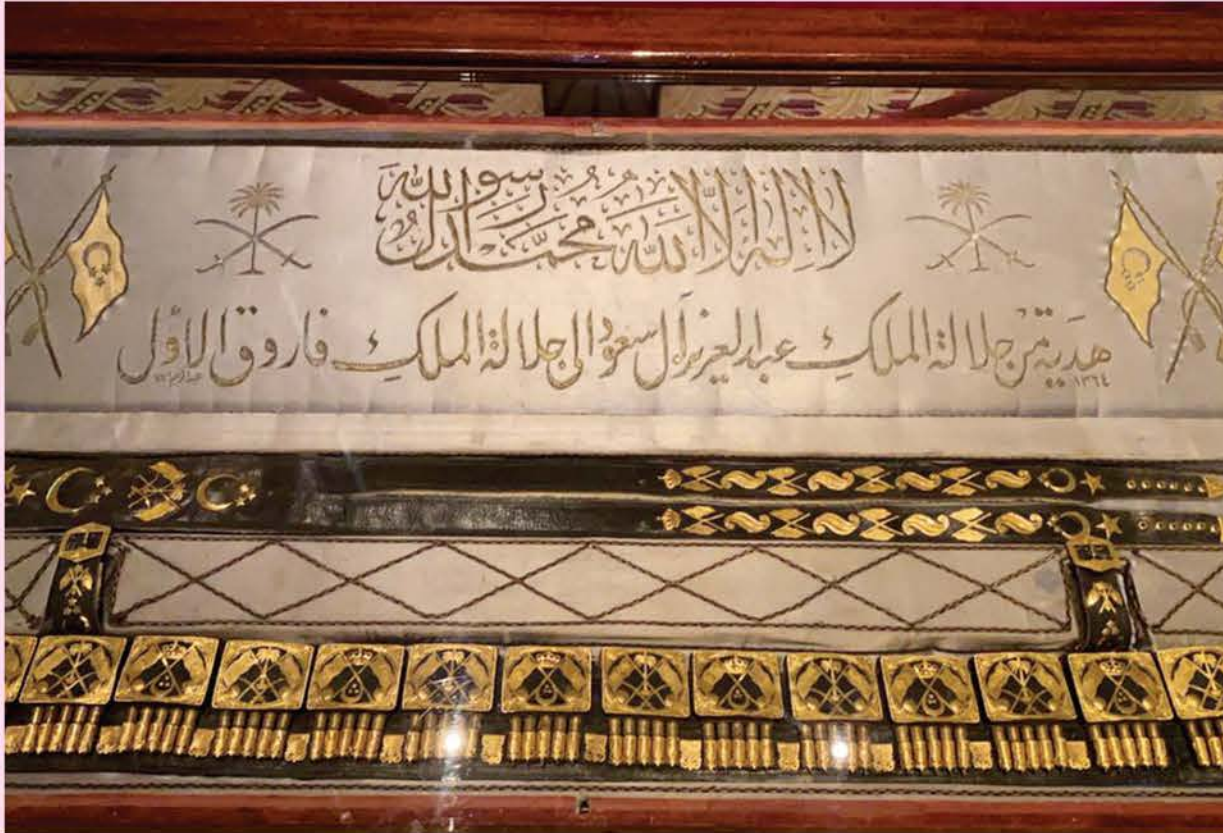 لا إله إلا الله محمد رسول الله
هدية من جلالة الملك عبد العزيز آل سعود إلى جلالة الملك فاروق الأول
١٣٦٤